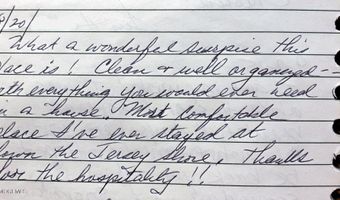 /20)
What a wonderful surprise this
place is! Clean & well organized--
with everything you would ever need
in a house. Most comfortable
place I've ever stayed at
down the Jersey Shore. Thanks
for the hospitality!!